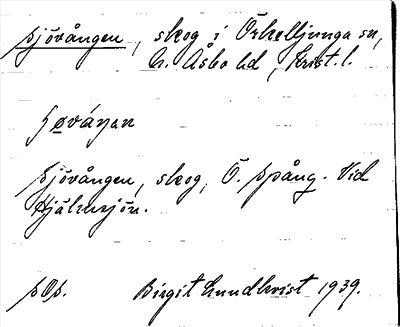 Sjövången, skog i Örkelljunga sn,
N. Åsbo hd, Krist. l.
Sjövången, skog, Ö. Spång. Vid
Hjälmsjön.
sOp. Birgit Lundkvist 1939.